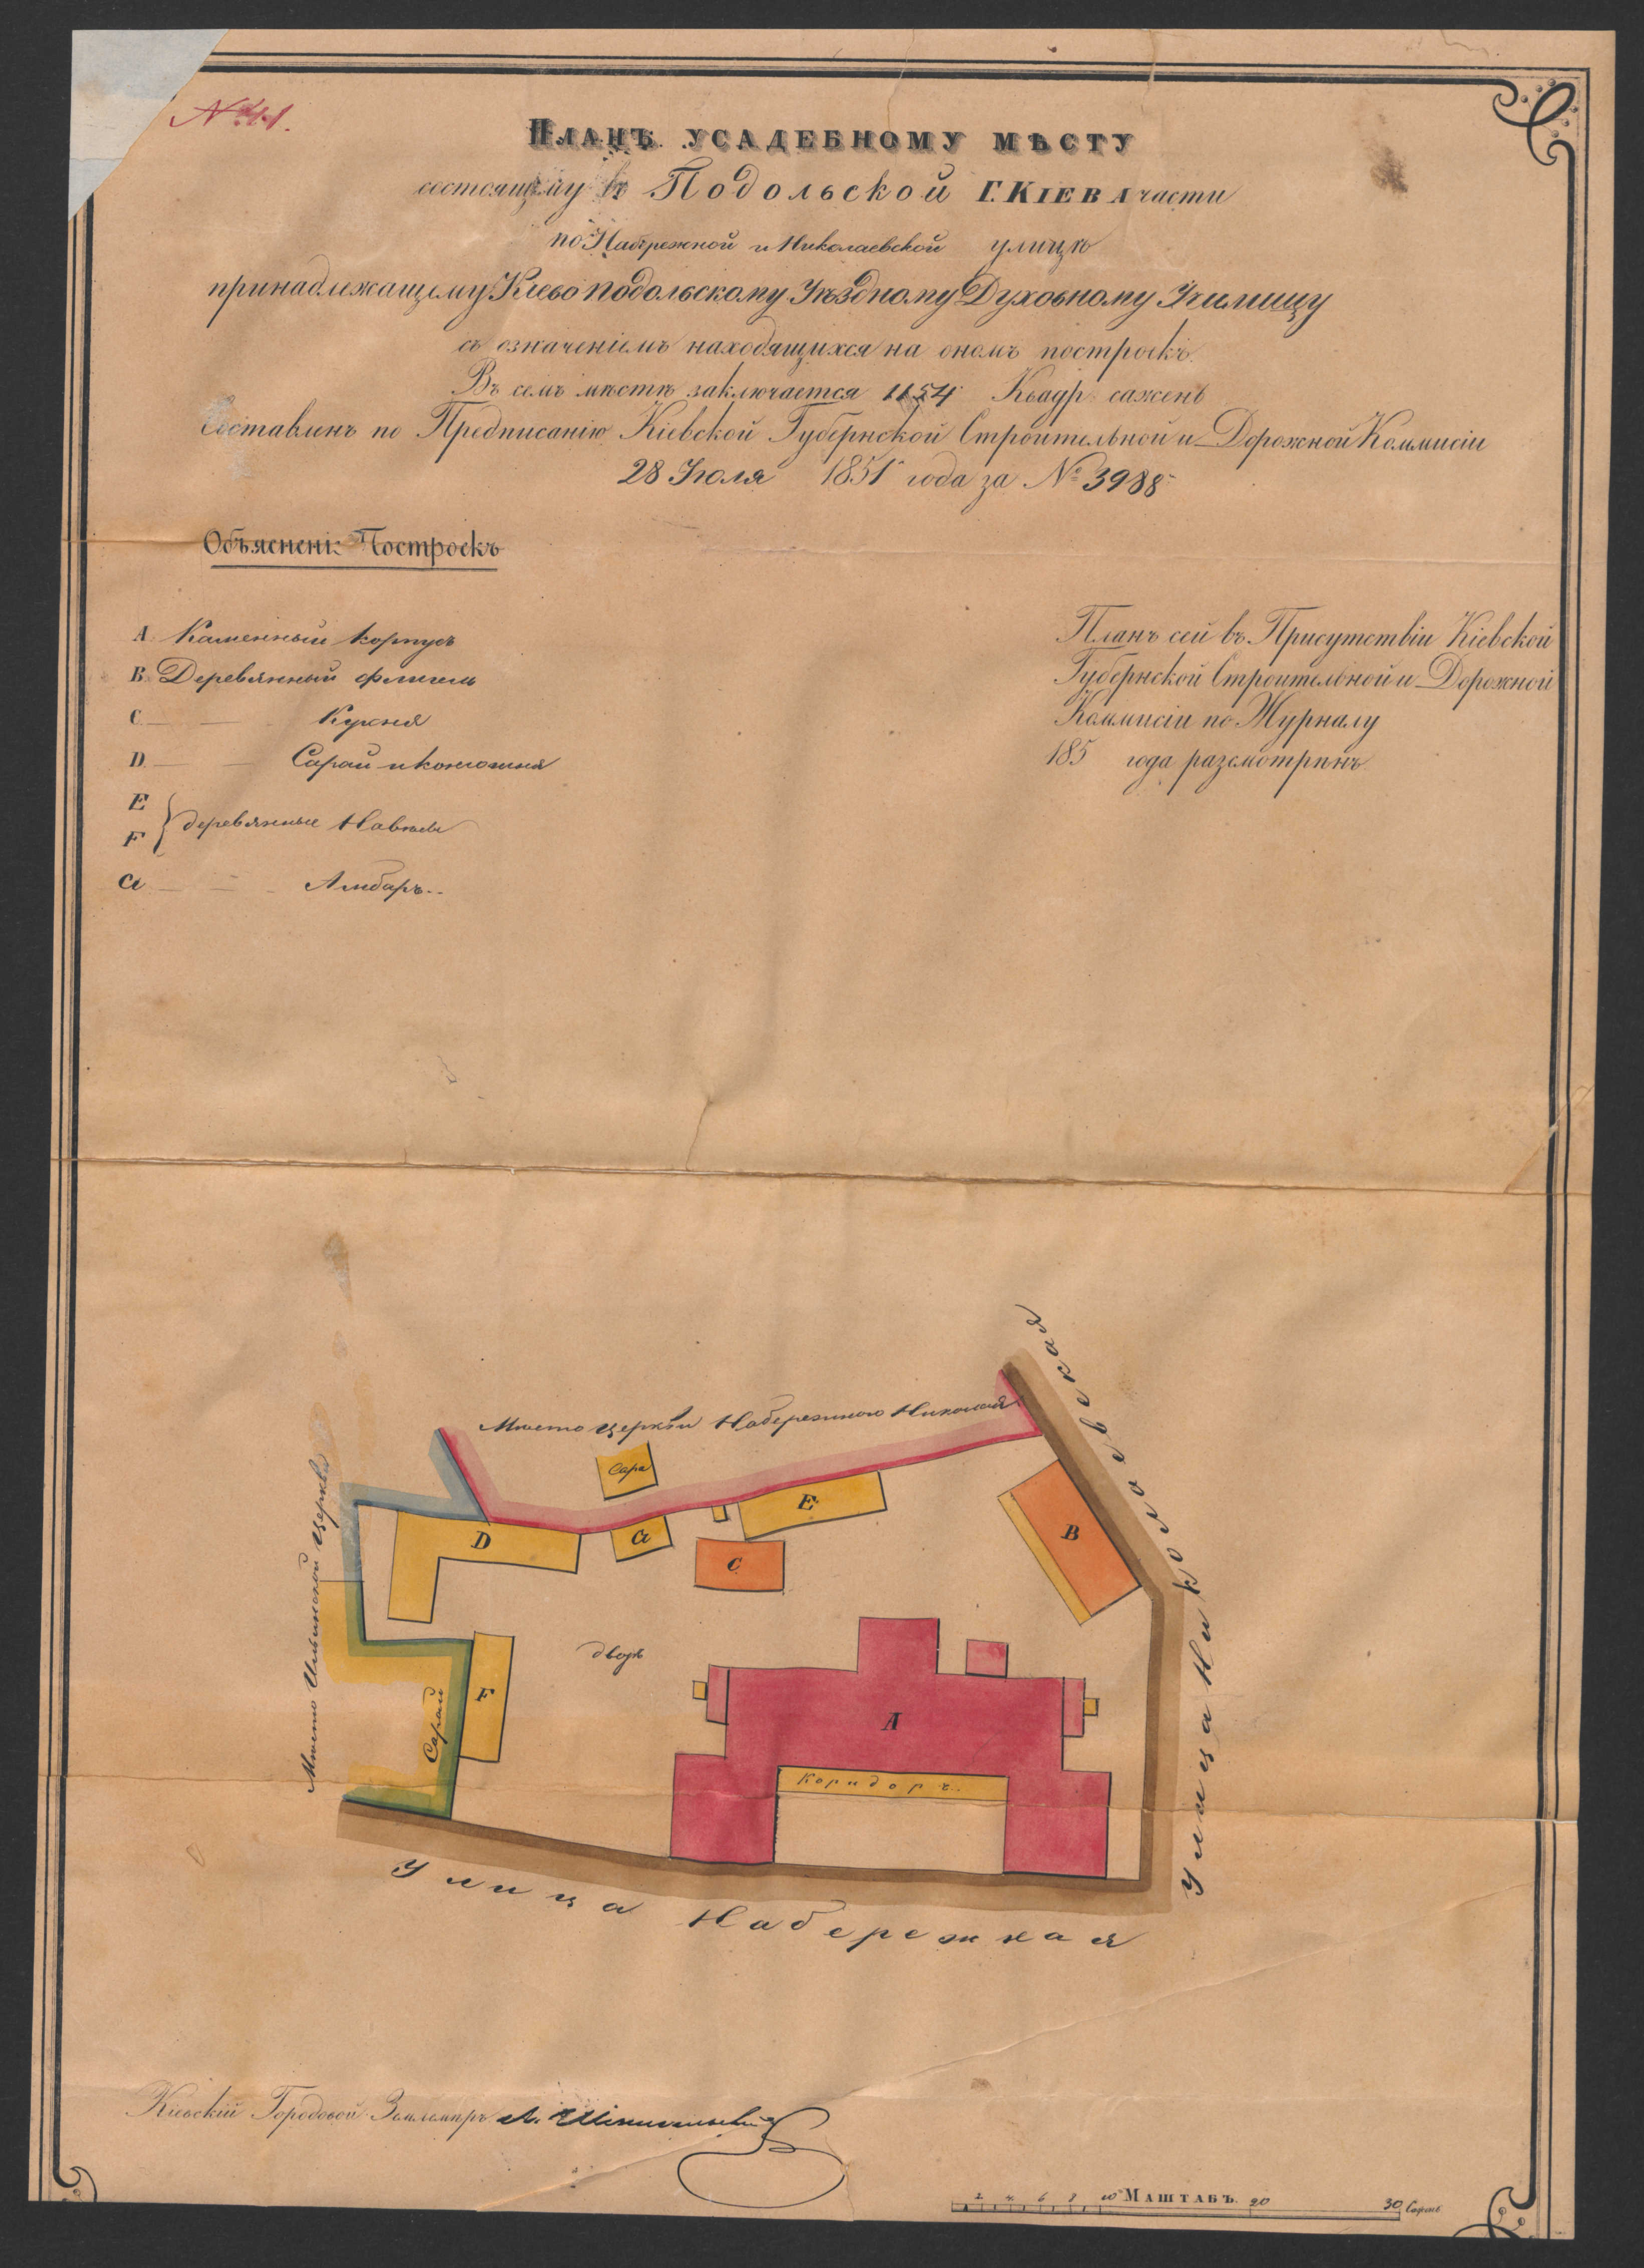 № 41.
Планъ усадебному мѣсту
состоящему въ Подольской Г. Кіева части
по Набережной и Николаевской улицѣ
принадлежащему Кіево подольскому Уѣздному Духовному Училищу
съ означеніемъ находящихся на ономъ построекъ.
Въ семъ мѣстѣ заключается 1154 Квадр. сажень
Составленъ по Предписанію Кіевской Губернской Строительной и Дорожной Коммисіи
28 Іюля 1851 года за № 3988
Объясненіе Построекъ
А. Каменный корпусъ
В. Деревянный флигель
С. Кухня
D. Сарай и конюшня
E
F } деревянные Навѣсы
G Амбаръ
Планъ сей въ Присутствіи Кіевской
Губернской Строительной и Дорожной
Коммисіи по Журналу
185 года разсмотрѣнъ
Улица Николаевская
Мѣсто церкви Набережнаго Николая
Мѣсто Ильинской церкви
Сара
E
D
G
C
B
дворъ
F
Сарай
А
Коридоръ.
Улица Набережная
Кіевскій Городовой Землемѣръ
2 4 6 8 10 Маштабъ. 20 30 Сажень